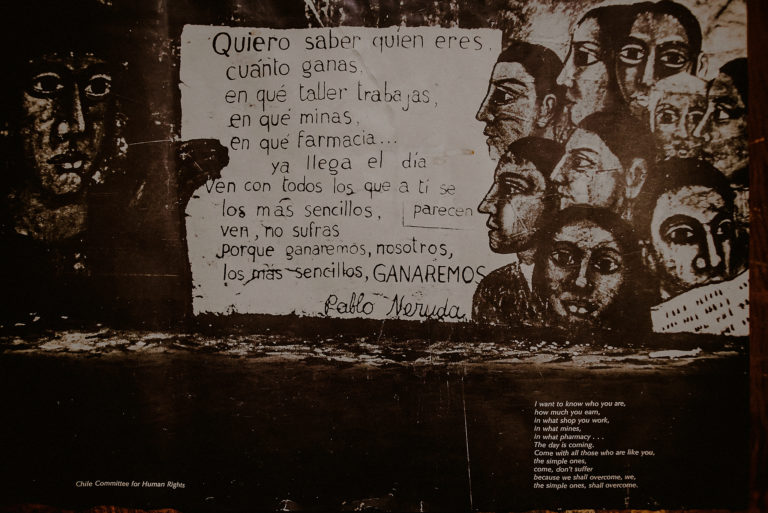 Quiero saber quién eres,
cuánto ganas,
en qué taller trabajas,
en qué minas,
en qué farmacia...
ya llega el día
ven con todos los que a tí se
los más sencillos, parecen
ven, no sufras
porque ganaremos, nosotros,
los más sencillos, GANAREMOS
Pablo Neruda
I want to know who you are,
how much you earn,
in what shop you work,
in what mines,
in what pharmacy . . .
The day is coming.
Come with all those who are like you,
the simple ones,
come, don't suffer
because we shall overcome, we,
the simple ones, shall overcome.
Chile Committee for Human Rights